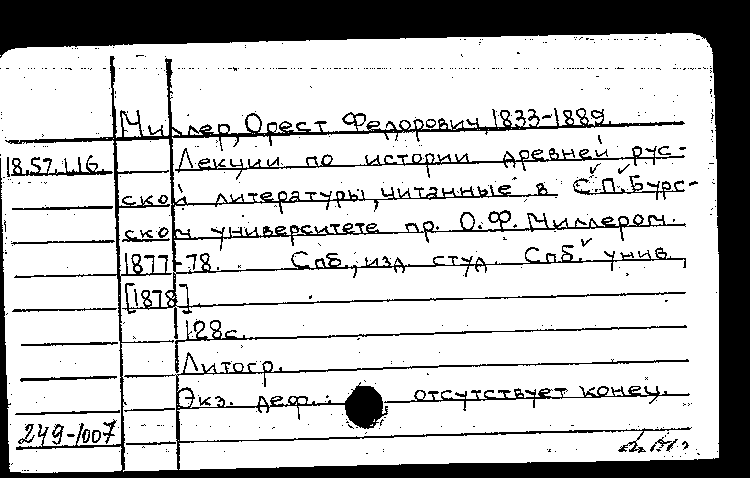 Миллер, Орест Федорович, 1833-1889.
18.57.1.16. Лекции по истории древней рус-
ской литературы, читанные в С.П.Бург-
ском университете пр. О.Ф.Миллером.
1877-78. Спб., изд. студ. Спб. унив.,
[1878].
128с.
Литогр.
Экз. деф.: отсутствует конец.
249-1007